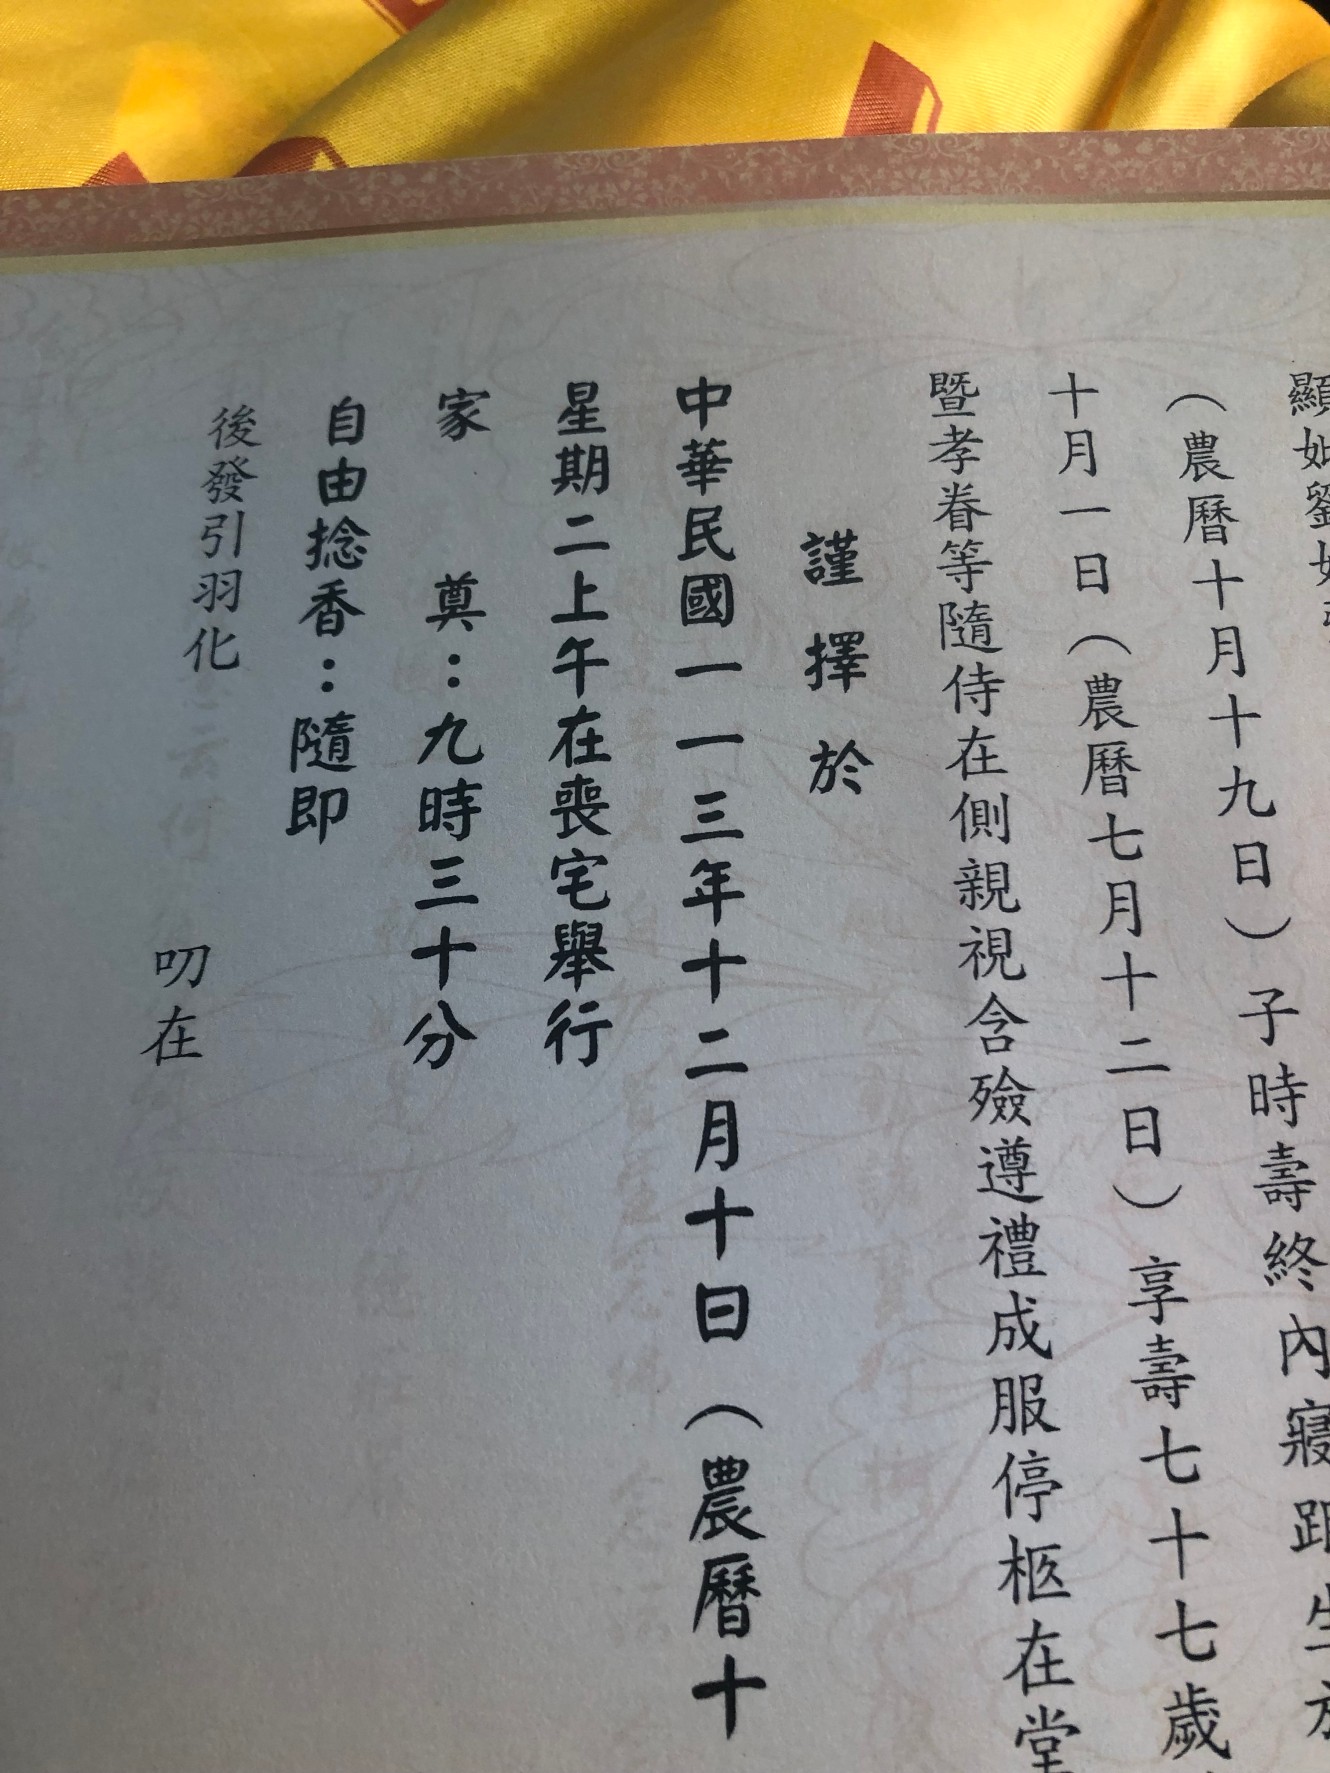 顯妣劉
（農曆十月十九日）子時壽終內寢距生於
十月一日（農曆七月十二日）享壽七十七歲
暨孝眷等隨侍在側親視含殮遵禮成服停柩在堂
謹擇於
中華民國一一三年十二月十日（農曆十
星期二上午在喪宅舉行
家奠：九時三十分
自由捻香：隨即
後發引羽化
叨在